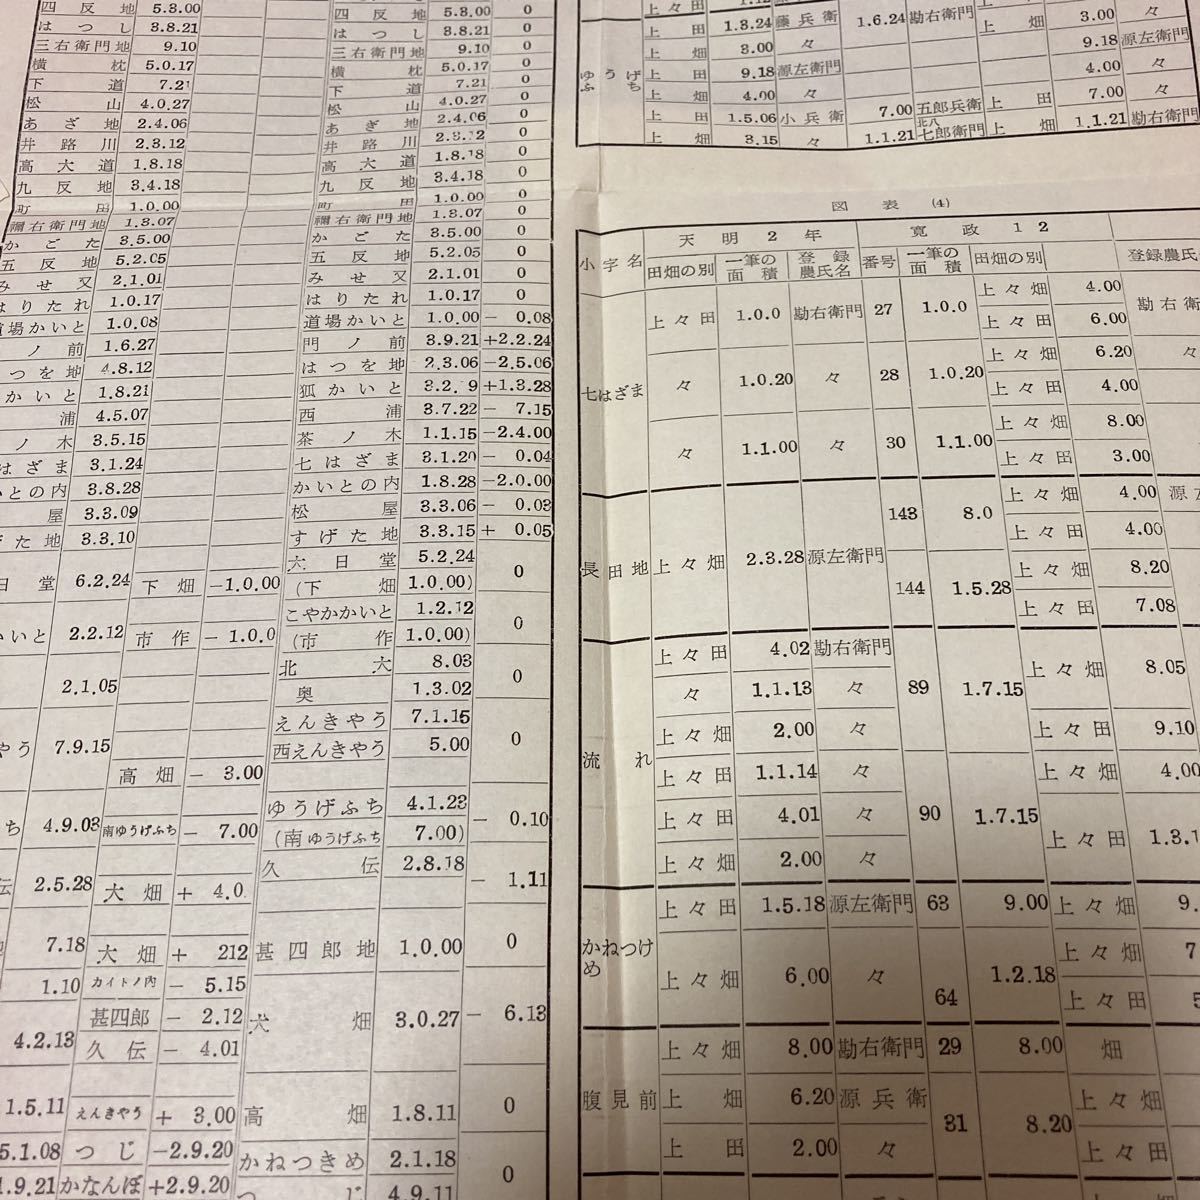 四反地 5.8.00 四反地 5.8.00 0
はつし 8.8.21 はつし 8.8.21 0
三右衛門地 9.10 三右衛門地 9.10 0
横枕 5.0.17 横枕 5.0.17 0
下道 7.21 下道 7.21 0
松山 4.0.27 松山 4.0.27 0
あざ地 2.4.06 あぎ地 2.4.06 0
井路川 2.8.12 井路川 2.8.12 0
高大道 1.8.18 高大道 1.8.18 0
九反地 3.4.18 九反地 3.4.18 0
町田 1.0.00 町田 1.0.00 0
禰右衛門地 1.8.07 禰右衛門地 1.8.07 0
かごた 8.5.00 かごた 8.5.00 0
五反地 5.2.05 五反地 5.2.05 0
みせ又 2.1.01 みせ又 2.1.01 0
はりたれ 1.0.17 はりたれ 1.0.17 0
道場かいと 1.0.08 道場かいと 1.0.00 − 0.08
ノ前 1.6.27 門ノ前 3.9.21 +2.2.24
つを地 4.8.12 はつを地 2.3.06 −2.5.06
かいと 1.8.21 狐かいと +1.3.28
浦 4.5.07 西浦 3.7.22 − 7.15
ノ木 3.5.15 茶ノ木 1.1.15 −2.4.00
はざま 3.1.24 七はざま 3.1.20 − 0.04
いとの内 3.8.28 かいとの内 1.8.28 −2.0.00
屋 3.3.09 松屋 3.3.06 − 0.03
げた地 3.3.10 すげた地 3.3.15 + 0.05
日堂 6.2.24 下畑 −1.0.00 六日堂 5.2.24 (下畑 1.0.00) 0
いと 2.2.12 市作 −1.0.0 こやかかいと 1.2.12 (市作 1.0.00) 0
2.1.05 北六 8.03 奥 1.3.02 0
やう 7.9.15 えんきやう 7.1.15 西えんきやう 5.00 0
高畑 − 3.00
ち 4.9.03 南ゆうげふち − 7.00 ゆうげふち 4.1.23 (南ゆうげふち 7.00) − 0.10
伝 2.5.28 大畑 + 4.0. 久伝 2.8.18 − 1.11
7.18 大畑 + 212 甚四郎地 1.0.00 0
1.10 カイトノ内 − 5.15
4.2.13 甚四郎 − 2.12 犬畑 3.0.27 − 6.13
久伝 − 4.01
1.5.11 えんきやう + 3.00 高畑 1.8.11 0
5.1.08 つじ −2.9.20 かねつきめ 2.1.18
.9.21 かなんぼ +2.9.20 つじ 4.9.11 0
上々田
上田 1.8.24 藤兵衛 1.6.24 勘右衛門
上畑 8.00 々 上畑 3.00 々
ゆうげふち 上田 9.18 源左衛門 9.18 源左衛門
上畑 4.00 々 4.00 々
上田 1.5.06 小兵衛 7.00 五郎兵衛 上田 7.00 々
上畑 8.15 々 1.1.21 北八 七郎衛門 上畑 1.1.21 勘右衛門
図表 (4)
小字名 天明2年 寛政12
田畑の別 一筆の面積 登録農氏名 番号 一筆の面積 田畑の別 登録農氏
七はざま 上々田 1.0.0 勘右衛門 27 1.0.0 上々畑 4.00 勘右衛
上々田 6.00
々 1.0.20 々 28 1.0.20 上々畑 6.20 々
上々田 4.00
々 1.1.00 々 30 1.1.00 上々畑 8.00
上々田 3.00
長田地 上々畑 2.3.28 源左衛門 143 8.0 上々畑 4.00 源左
上々田 4.00
144 1.5.28 上々畑 8.20
上々田 7.08
流れ 上々田 4.02 勘右衛門
々 1.1.13 々 89 1.7.15 上々畑 8.05
上々畑 2.00 々 上々田 9.10
上々田 1.1.14 々 上々畑 4.00
上々田 4.01 々 90 1.7.15 上々田 1.3.1
上々畑 2.00 々
かねつけめ 上々田 1.5.18 源左衛門 63 9.00 上々畑 9.
上々畑 6.00 々 64 1.2.18 上々畑 7
上々田 5
腹見前 上々畑 8.00 勘右衛門 29 8.00 畑
上畑 6.20 源兵衛 31 8.20 上々畑
上田 2.00 々 上々田